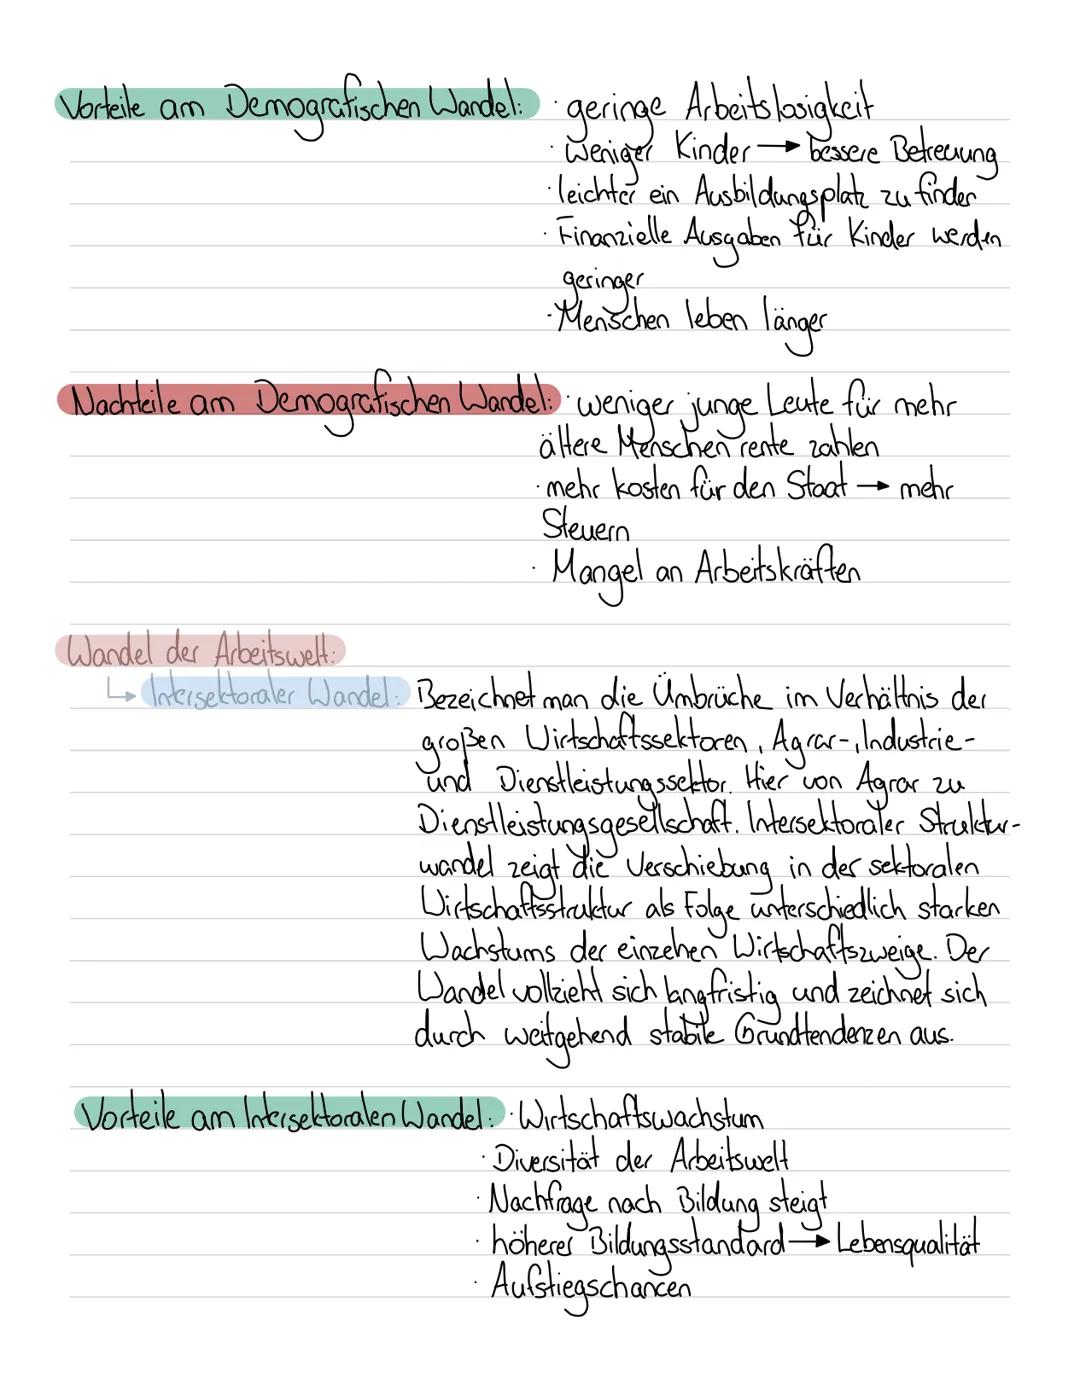 Vorteile am Demografischen Wandel: · geringe Arbeitslosigkeit
· weniger Kinder → bessere Betreuung
· leichter ein Ausbildungsplatz zu finden
· Finanzielle Ausgaben für Kinder werden
geringer
· Menschen leben länger
Nachteile am Demografischen Wandel: · weniger junge Leute für mehr
ältere Menschen rente zahlen
· mehr kosten für den Staat → mehr
Steuern
· Mangel an Arbeitskräften
Wandel der Arbeitswelt:
↳ Intersektoraler Wandel: Bezeichnet man die Umbrüche im Verhältnis der
großen Wirtschaftssektoren, Agrar-, Industrie-
und Dienstleistungssektor. Hier von Agrar zu
Dienstleistungsgesellschaft. Intersektoraler Struktur-
wandel zeigt die Verschiebung in der sektoralen
Wirtschaftsstruktur als Folge unterschiedlich starken
Wachstums der einzelnen Wirtschaftszweige. Der
Wandel vollzieht sich langfristig und zeichnet sich
durch weitgehend stabile Grundtendenzen aus.
Vorteile am Intersektoralen Wandel: · Wirtschaftswachstum
· Diversität der Arbeitswelt
· Nachfrage nach Bildung steigt
· höherer Bildungsstandard → Lebensqualität
· Aufstiegschancen